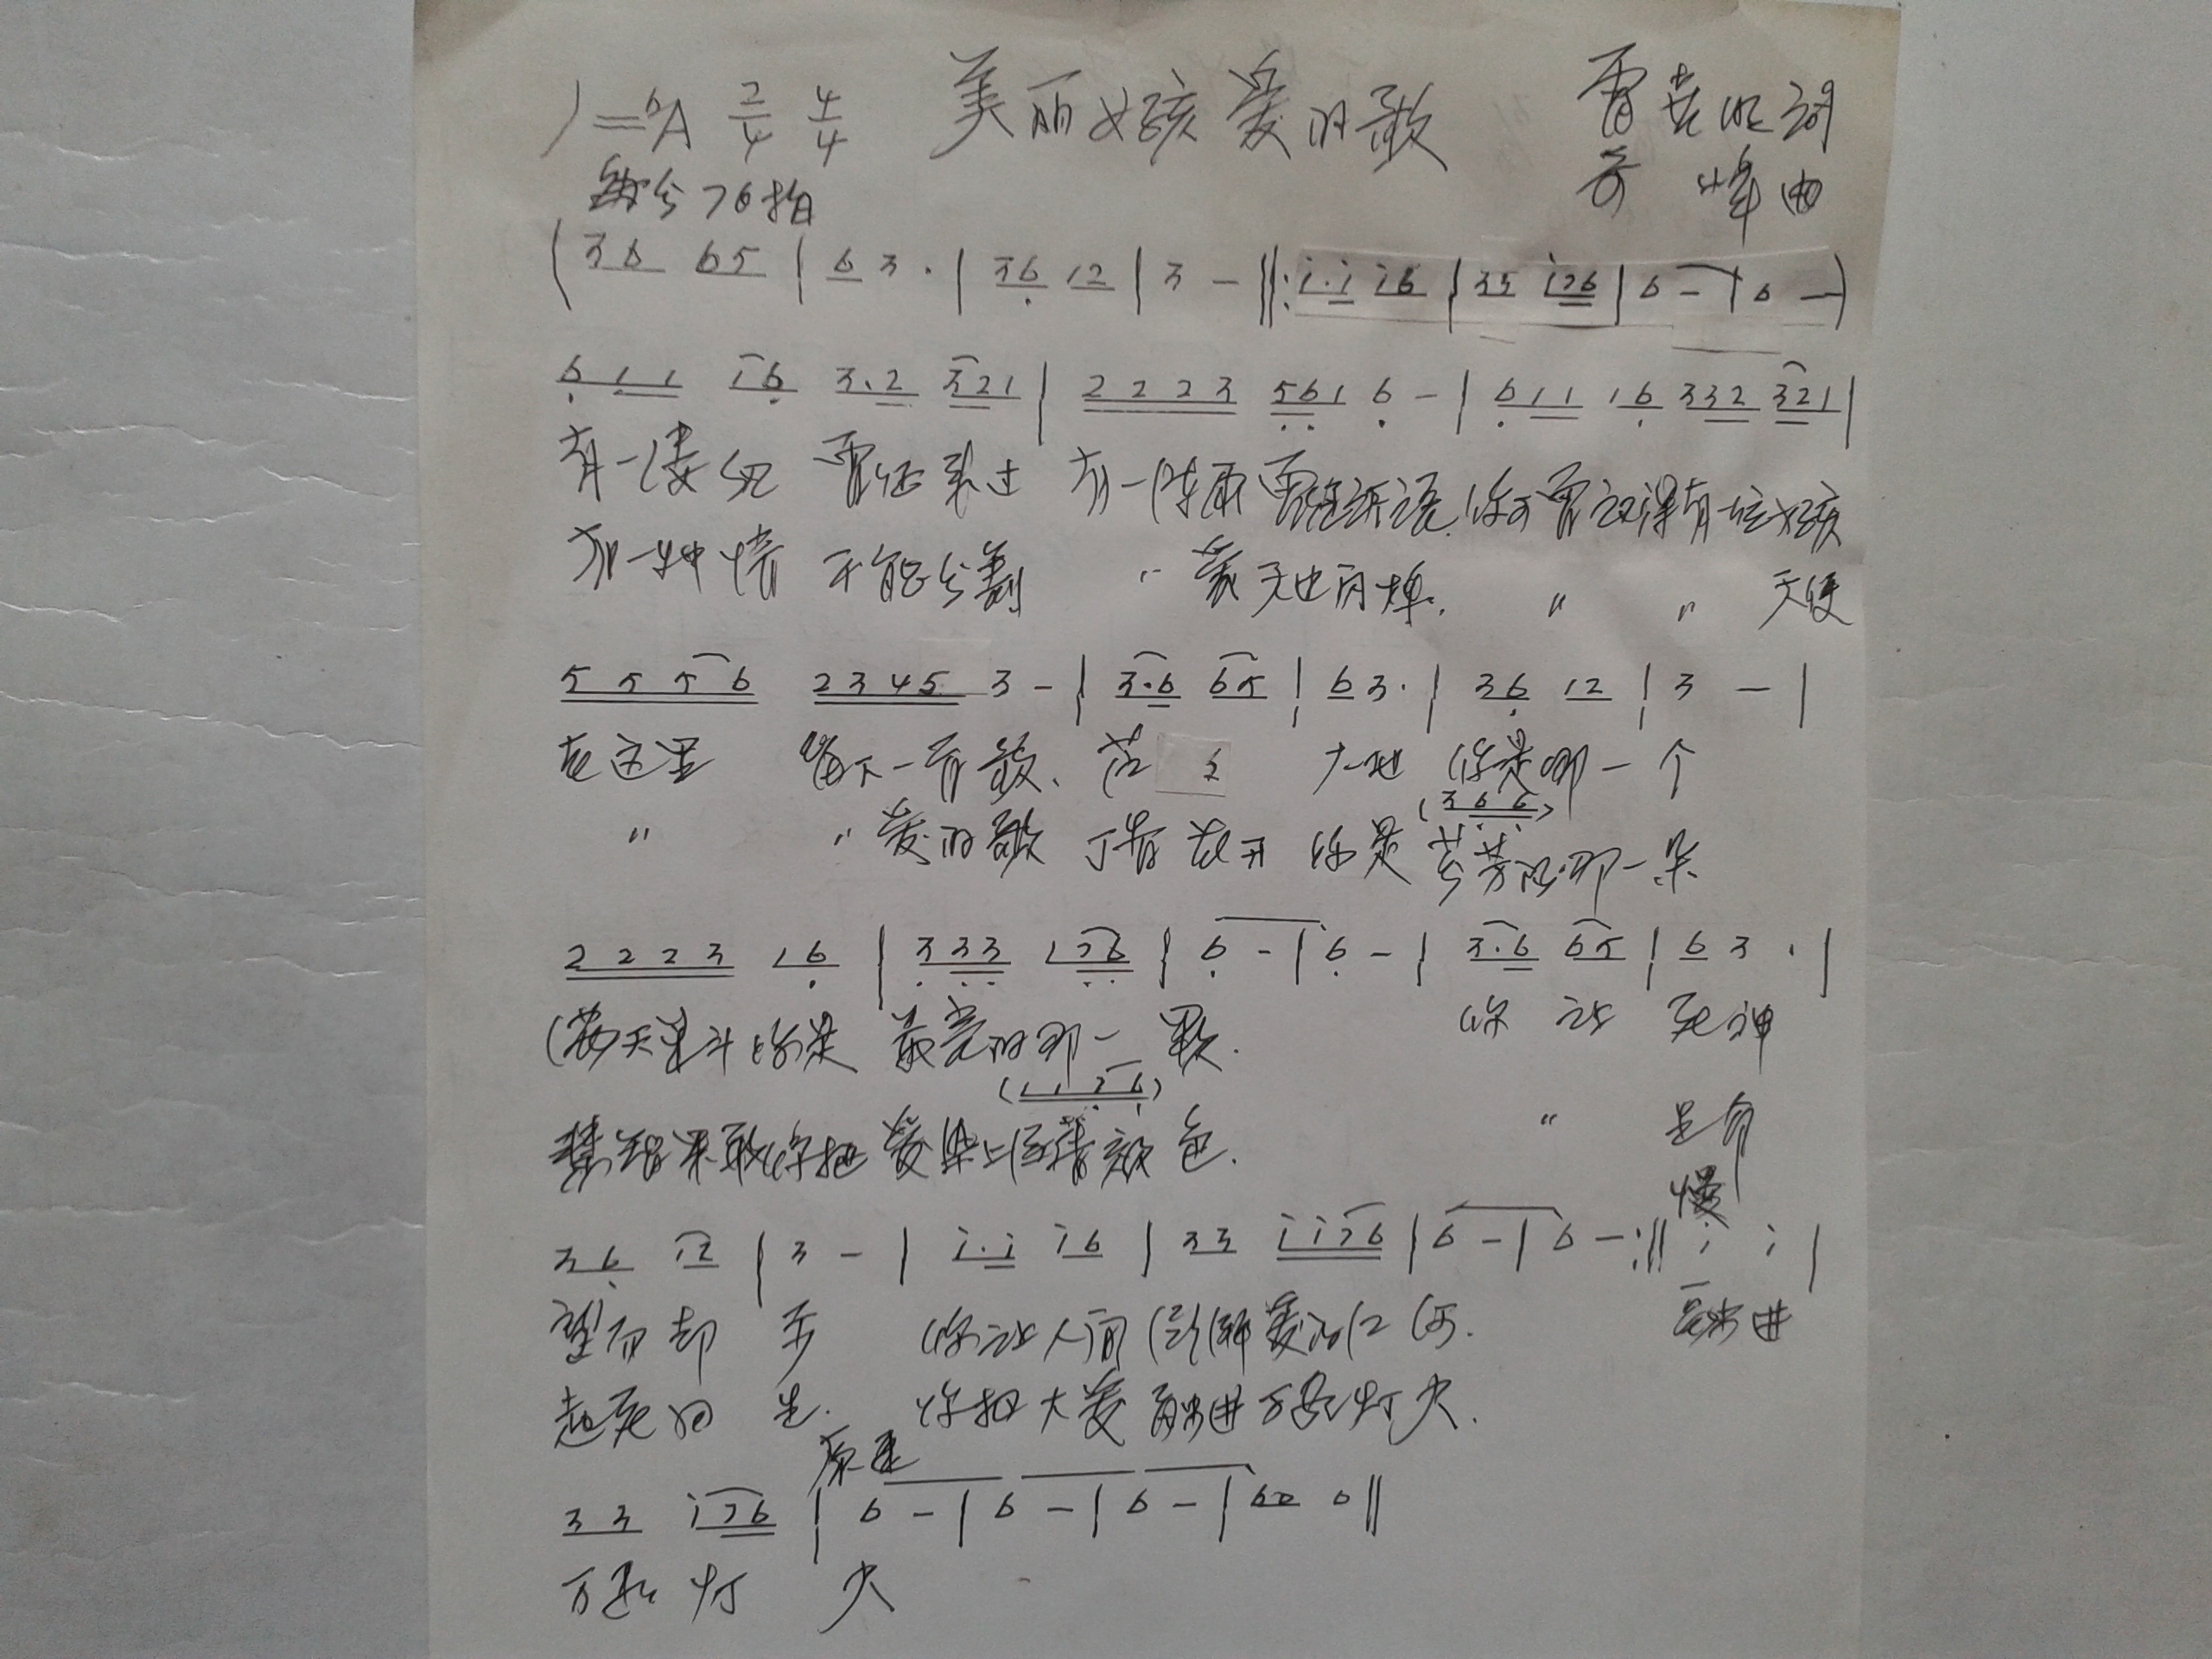 1=♭A 2/4 4/4 美丽女孩爱的歌 词
每分76拍 峰曲
(36 65 | 6 3 · | 36 12 | 3 - ‖: i·i i6 | 35 i76 | 6 - | 6 -)
611 16 3·2 321 | 2223 561 6 - | 611 16 332 321 |
有一缕 曾经来过 有一阵雨曾经诉语.你可曾记得有一位女孩
有一种情 不能分割 〃 爱天也 〃 〃 天使
5556 2345 3 - | 3·6 65 | 6 3 · | 36 12 | 3 - |
在这里 留下一首歌、 大地 你是哪一个
(366)
〃 〃 爱的歌 花开 你是芬芳的那一朵
2223 16 | 333 176 | 6 - | 6 - | 3·6 65 | 6 3 · |
满天星斗你是 最亮的那一颗. 你 让 死神
(1176)
智慧果敢你把爱染上 颜色. 〃 慢
36 12 | 3 - | i·i i6 | 33 ii76 | 6 - | 6 - :‖ i i |
望而却 步 你让人间 爱的 融进
起死回 生. 你把大爱融进万家灯火.
原速
33 i76 | 6 - | 6 - | 6 - | 60 0 ‖
万家 灯 火